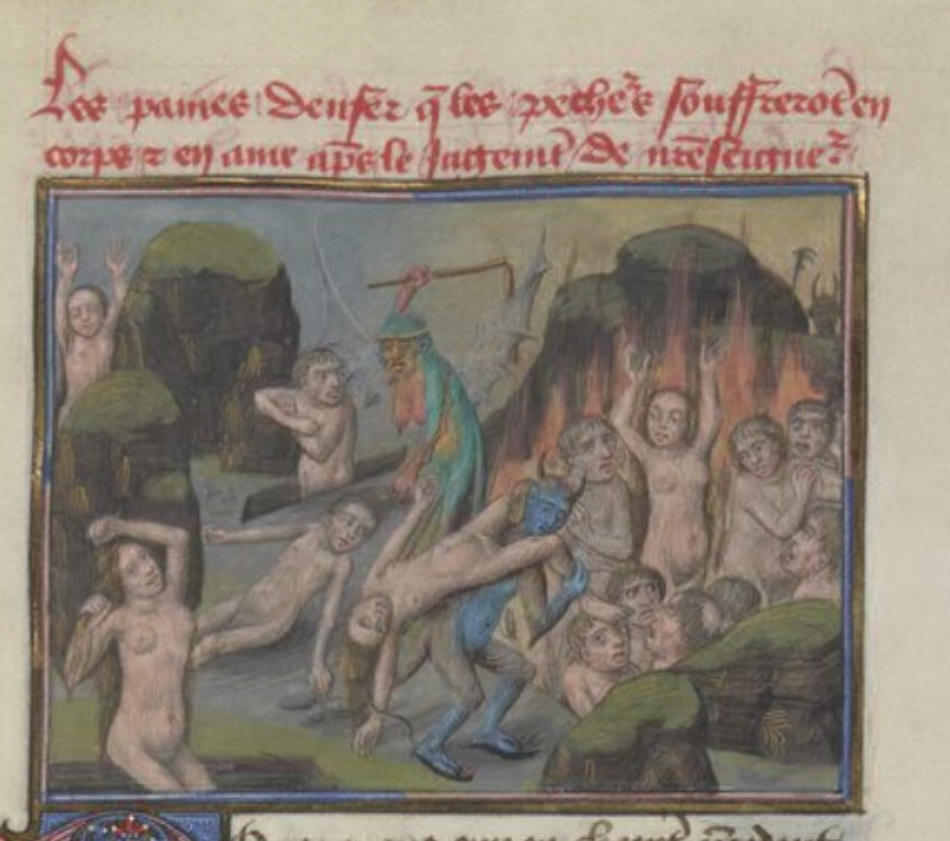 Les paines denfer q̃ les pecheᷣs souffrerot̃ en
corps ⁊ en ame ap̃s le Jugemt̃ de nr̃e seigneᷣ